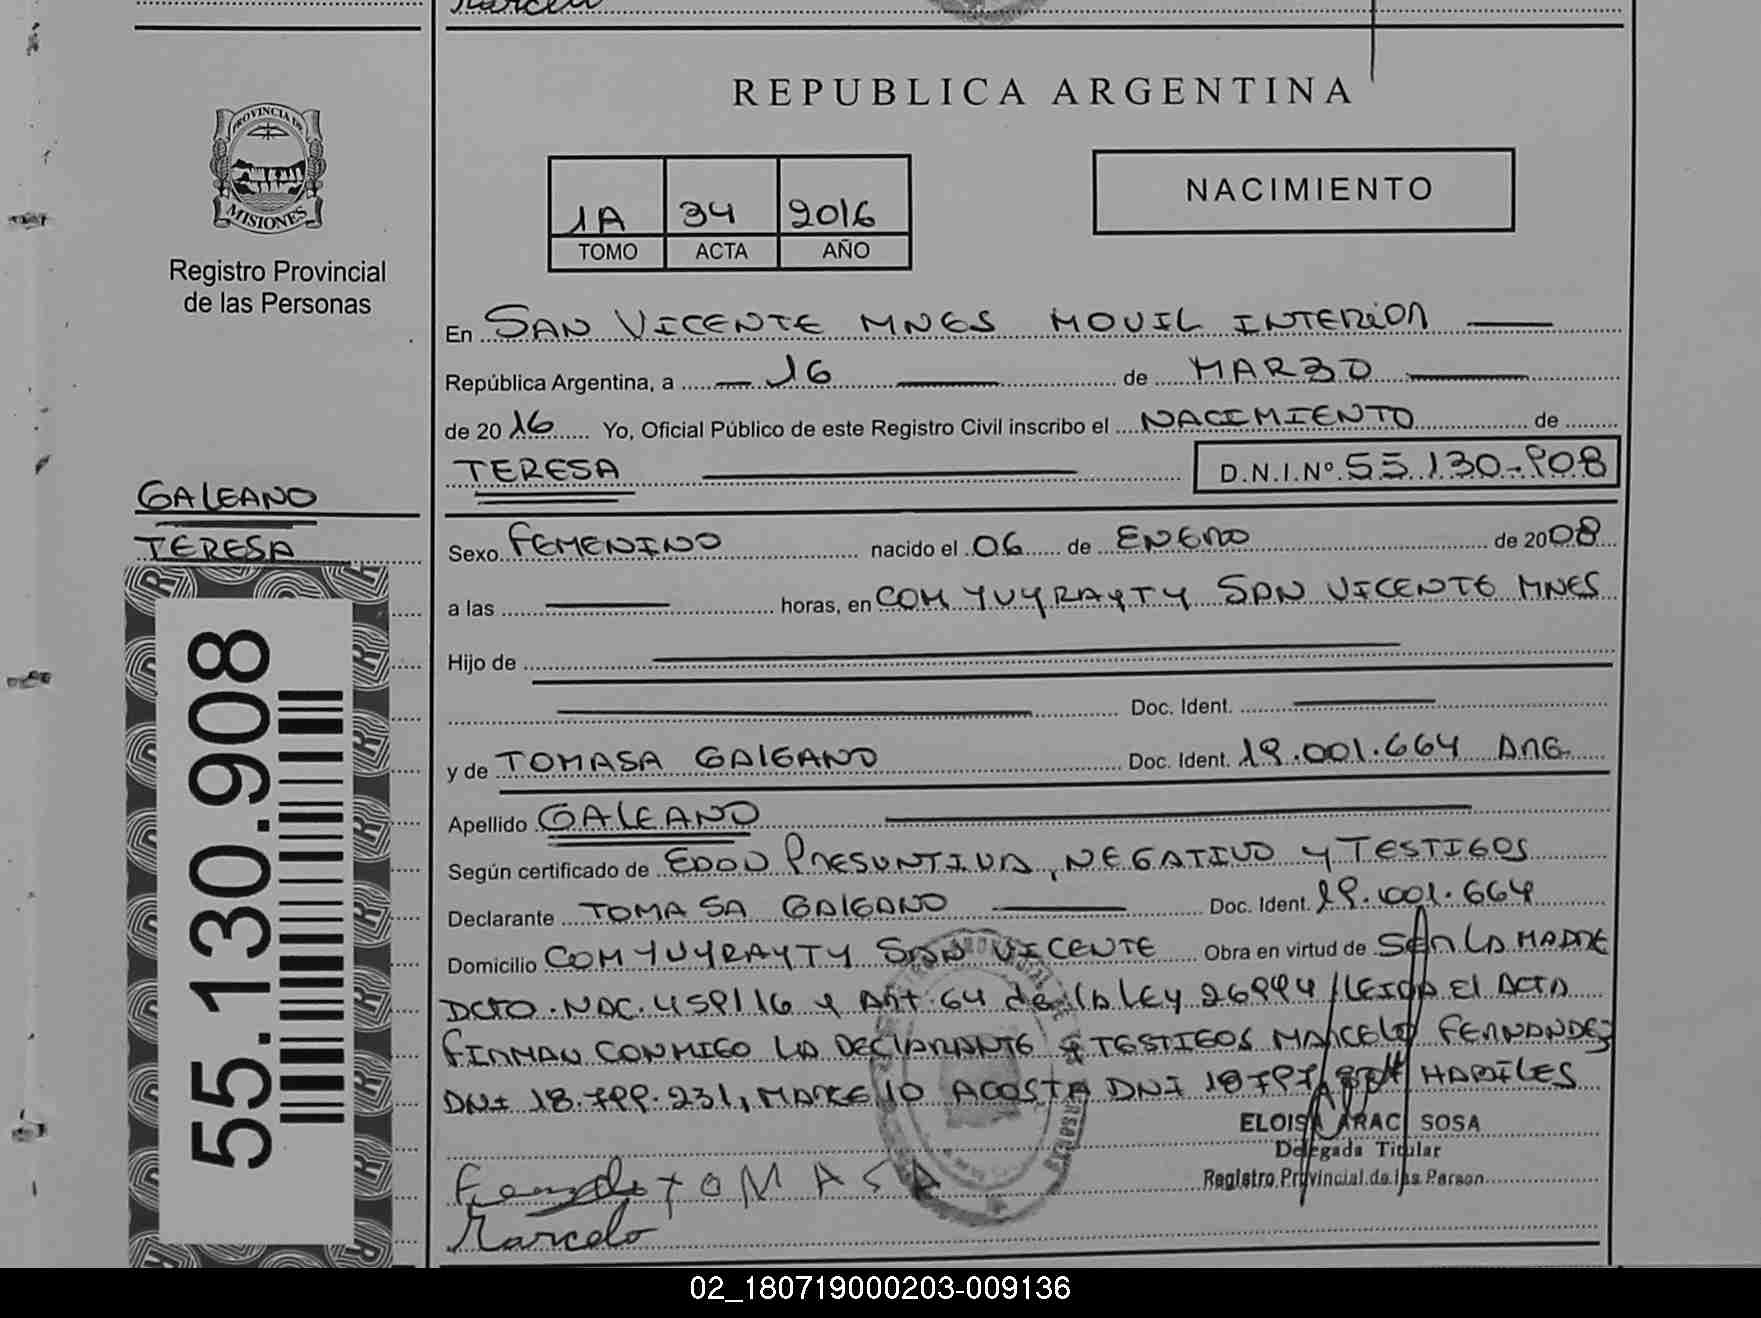 REPUBLICA ARGENTINA
PROVINCIA DE
MISIONES
Registro Provincial
de las Personas
NACIMIENTO
1A 34 2016
TOMO ACTA AÑO
En SAN VICENTE MNES MOVIL INTERIOR
República Argentina, a 16 de MARZO
de 2016 Yo, Oficial Público de este Registro Civil inscribo el NACIMIENTO de
TERESA D.N.I.Nº 55.130.908
GALEANO
TERESA
55.130.908
Sexo FEMENINO nacido el 06 de ENERO de 2008
a las horas, en COM YUYRAYTY SAN VICENTE MNES
Hijo de
Doc. Ident.
y de TOMASA GALEANO Doc. Ident. 19.001.664 ARG.
Apellido GALEANO
Según certificado de EDAD PRESUNTIVA, NEGATIVO Y TESTIGOS
Declarante TOMASA GALEANO Doc. Ident. 19.001.664
Domicilio COM YUYRAYTY SAN VICENTE Obra en virtud de SER LA MADRE
DCTO. NAC. 459/16 Y ART. 64 de LA LEY 26994 / LEIDA EL ACTA
FIRMAN CONMIGO LA DECLARANTE Y TESTIGOS MARCELO FERNANDEZ
DNI 18.799.231, MARCELO ACOSTA DNI HABILES
ELOISA ARACI SOSA
Delegada Titular
Registro Provincial de las Person
TOMASA
Marcelo
02_180719000203-009136